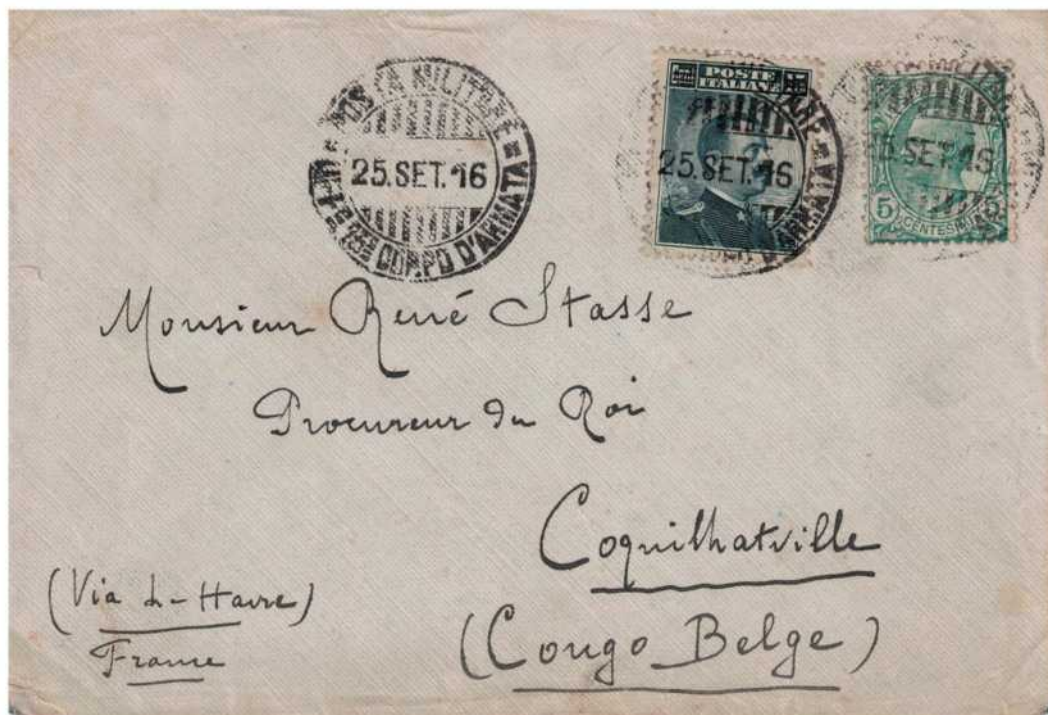 POSTA MILITARE
25.SET.16
CORPO D'ARMATA
POSTE
ITALIANE
25.SET.16
D'ARMATA
SET.16
5
CENTESIMI
Monsieur René Stasse
Procureur du Roi
Coquilhatville
(Congo Belge)
(Via Le Havre)
France